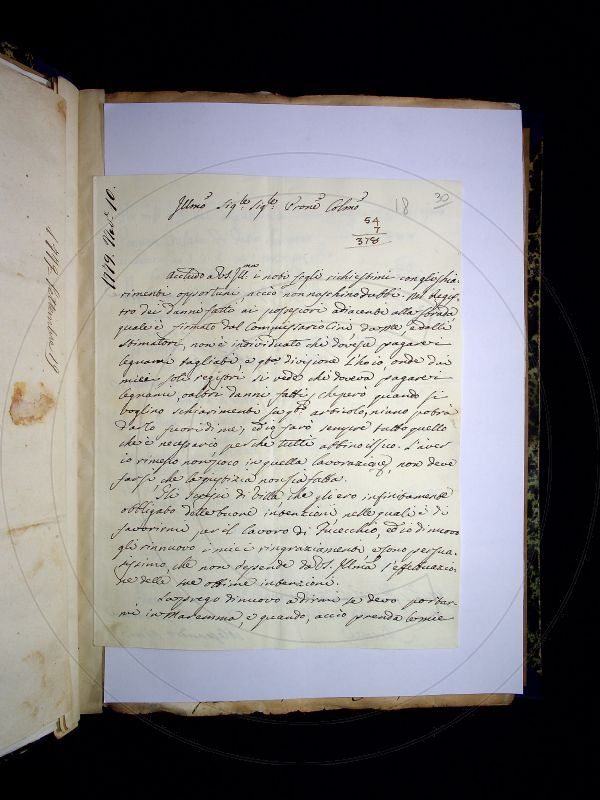 1779. Nov.e 10.
Illmo Sig.re Sig.re Prone Colmo
18
30
54
7
378
Accludo a VS. Ill.ma i noti fogli richiestimi con gli schia
rimenti opportuni, acciò non naschino dubbi. Nel regis
tro dei danni fatti ai possessori adiacenti alla strada
quale è firmato dal Commissario Lini, da me, e dalli
stimatori, non è individuato chi dovesse pagare i
legnami tagliati, e divisione l'ho io, onde dai
miei soli registri si vede chi doveva pagare i
legnami, o altri danni fatti, che però quando si
voglino schiarimenti sa q.to articolo, niuno potrà
darlo fuori di me, ed io farò sempre tutto quello
che è necessario perche tutti abbino il suo. L'aver
io rimesso non poco in quella lavorazione, non deve
far sì che la giustizia non sia fatta.
Gli scrissi di Villa, che gli ero infinitamente
obbligato delle buone intenzioni nelle quali è di
favorirmi per il lavoro di Fucecchio, ed io di nuovo
gli rinnuovo i miei ringraziamenti, e sono persua
sissimo, che non depende da VS. Illma l'effettuazio
ne delle sue ottime intenzioni.
La prego di nuovo a dirmi se devo portar
mi in Maremma, e quando, acciò prenda le mie